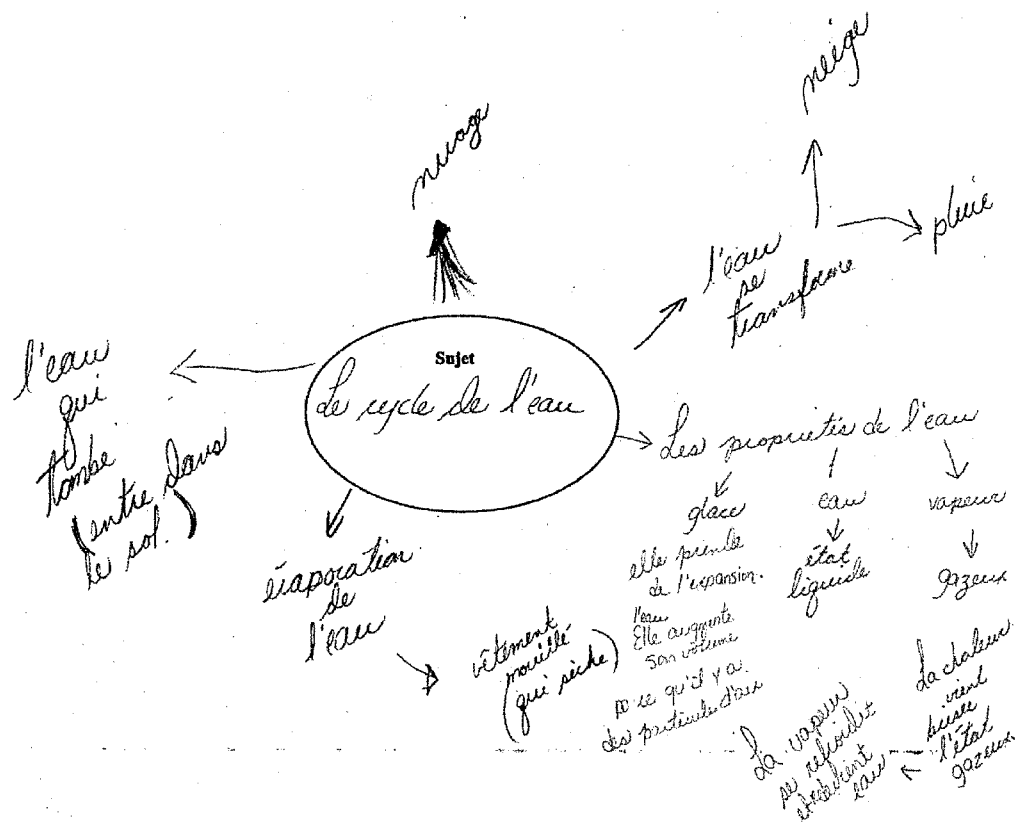 Sujet
Le cycle de l'eau
nuage
l'eau
se
transforme
neige
pluie
l'eau
qui
tombe
(entre dans
le sol.)
évaporation
de
l'eau
vêtement
mouillé
(qui sèche)
Les propriétés de l'eau
glace
elle prends
de l'expansion.
l'eau
Elle augmente
son volume
qu'il y a
des particules d'air
eau
état
liquide
vapeur
gazeux
La chaleur
vient
l'état
gazeux.
La vapeur
se refroidit
et redevient
eau